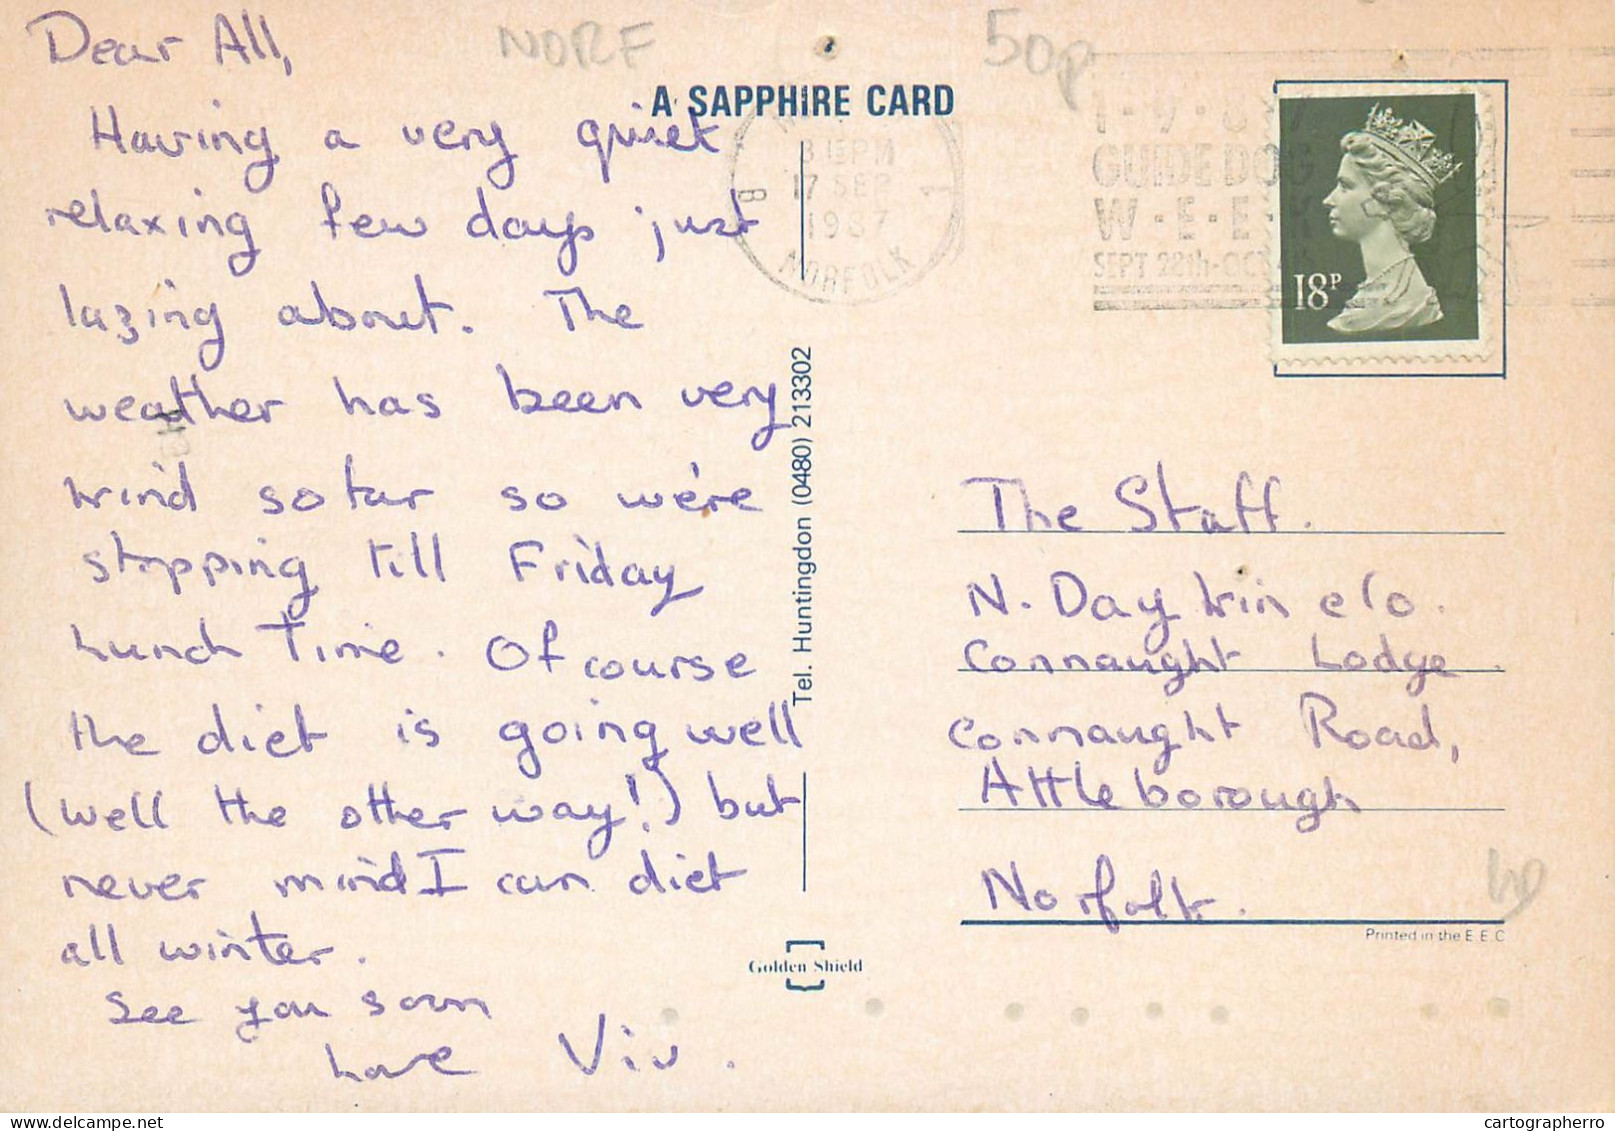 Dear All,
Having a very quiet
relaxing few days just
lazing about. The
weather has been very
kind so far so we're
stopping till Friday
Lunch Time. Of course
the diet is going well
(well the other way!) but
never mind I can diet
all winter.
See you soon
Love Viv.
NORF
50p
A SAPPHIRE CARD
3 15 PM
17 SEP
1987
B 1
NORFOLK
1·9·8·7
GUIDE DOG
W·E·E·K
SEPT 28th-OCT
18P
Tel. Huntingdon (0480) 213302
The Staff.
N. Day Win clo.
Connaught Lodge
Connaught Road,
Attleborough
Norfolk.
Printed in the E.E.C
Golden Shield
cartographerro